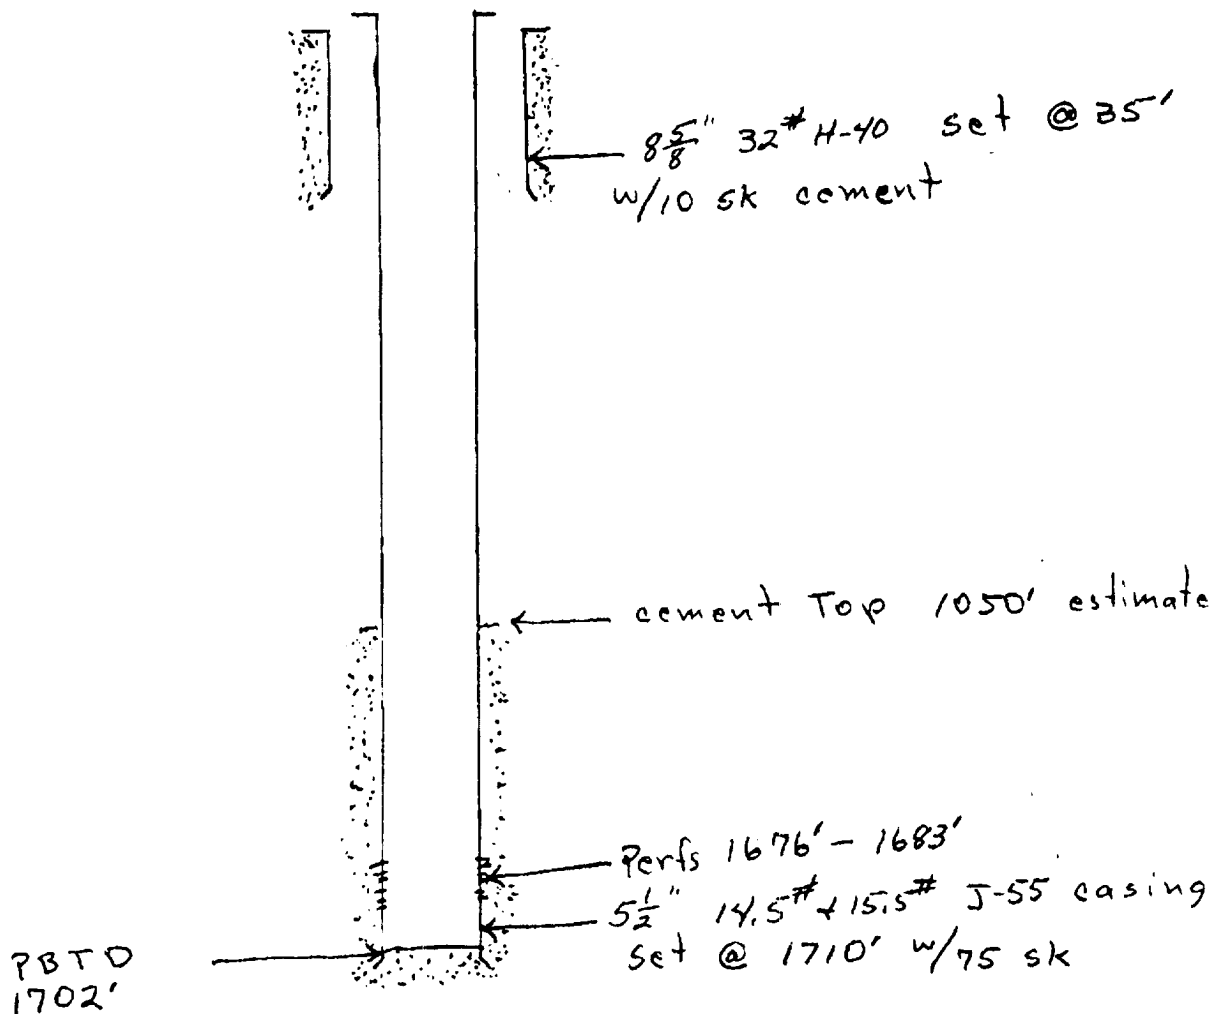 8 5/8" 32# H-40 set @ 35'
w/10 sk cement
cement Top 1050' estimate
Perfs 1676' - 1683'
5 1/2" 14.5# + 15.5# J-55 casing
set @ 1710' w/75 sk
PBTD
1702'